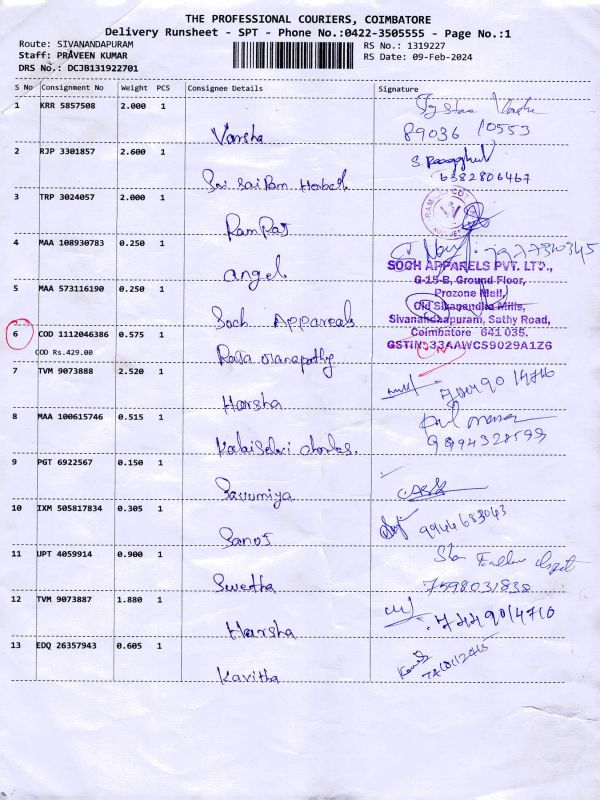 THE PROFESSIONAL COURIERS, COIMBATORE
Delivery Runsheet - SPT - Phone No.:0422-3505555 - Page No.:1
Route: SIVANANDAPURAM
Staff: PRAVEEN KUMAR
DRS No.: DCJB131922701
RS No.: 1319227
RS Date: 09-Feb-2024
S No Consignment No Weight PCS Consignee Details Signature
1 KRR 5857508 2.000 1
Varsha
89036 10553
2 RJP 3301857 2.600 1
6382806467
3 TRP 3024057 2.000 1
RamRaj
4 MAA 108930783 0.250 1
angel
SOCH APPARELS PVT. LTD.,
G-15-B, Ground Floor,
Prozone Mall,
Old Sivapandika Mills,
Sivanandhapuram, Sathy Road,
Coimbatore 641 035.
GSTIN: 33AAWCS9029A1Z6
5 MAA 573116190 0.250 1
Soch Appareals
6 COD 1112046386 0.575 1
COD Rs.429.00
7 TVM 9073888 2.520 1
Harsha
8 MAA 100615746 0.515 1
9894328599
9 PGT 6922567 0.150 1
Sasiumiya
10 IXM 505817834 0.305 1
9944683043
Sanoj
11 UPT 4059914 0.900 1
Swetha
7598031838
12 TVM 9073887 1.880 1
Harsha
13 EDQ 26357943 0.605 1
Kavitha